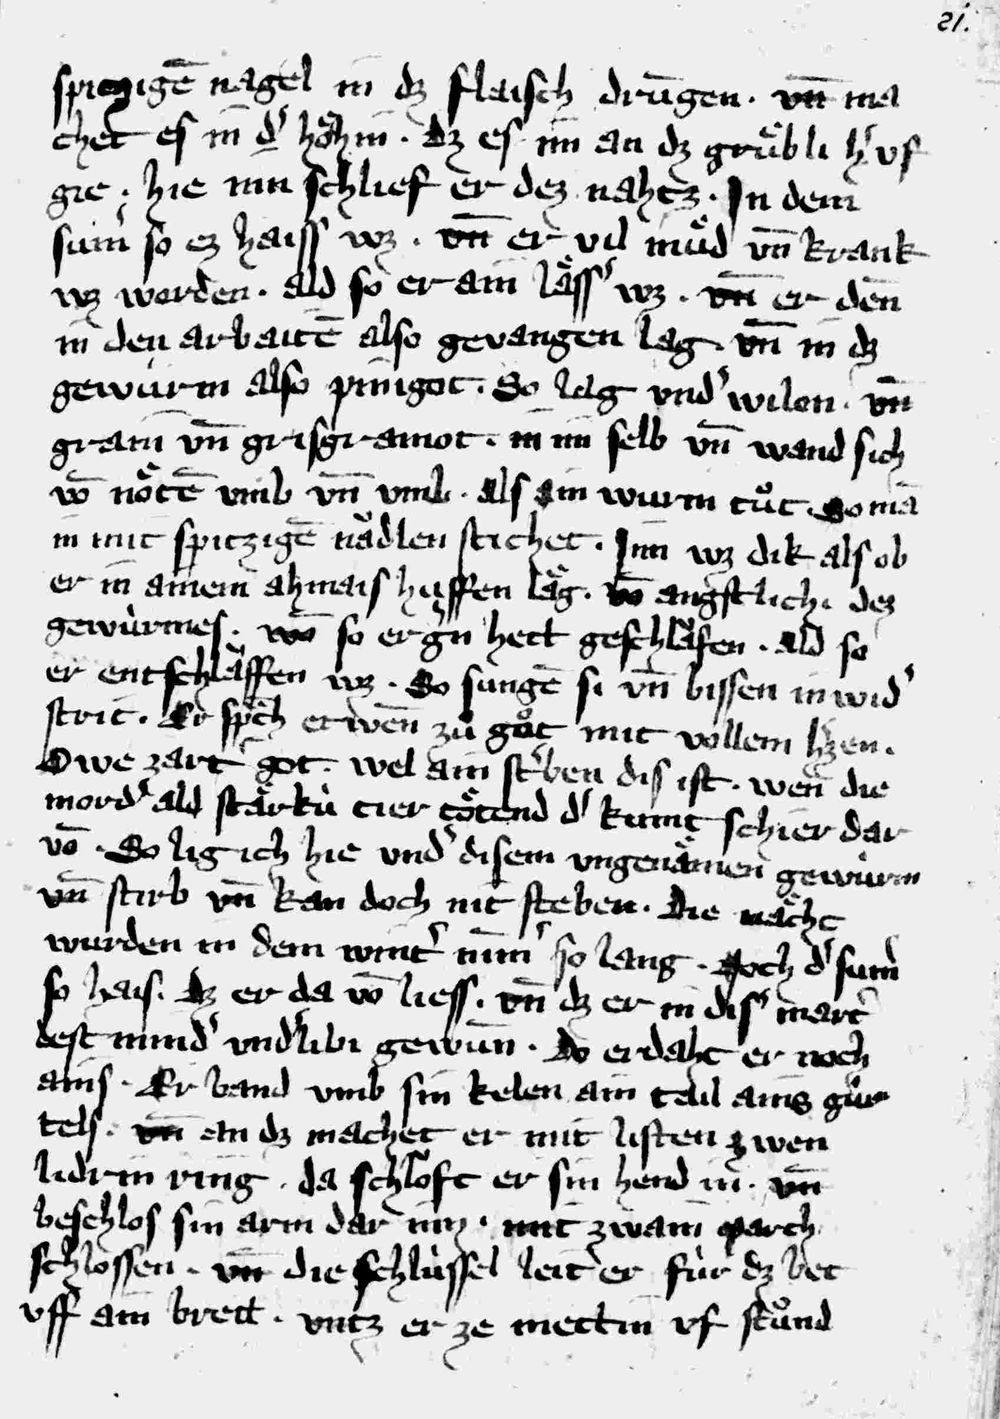 21.
spiczigē nagel in dz flaisch drungen. vn̄ ma
chet es in dʼ hoͤhin. dz es im an dz gruͤbli hʼ vf
gie. hie inn schlief er dez nahtz. In dem
sumʼ so ez haiss wz. vn̄ er vil muͤd vn̄ krank
wz worden. ald so er ain laͤssʼ wz. vn̄ er den̄
in den arbaitē also gevangen lag. vn̄ in dz
gewuͤrm also pinigot. So lag vndʼ wilon. vn̄
grain vn̄ grisgramot. in im selb vn̄ wand sich
vō noͤtē vmb vn̄ vmb. als ain wurm tuͦt. So mā
in mit spitzigē nadlen stichet. Im wz dik als ob
er in ainem ahmais huffen laͤg. vō angstlichi dez
gewuͤrmes. wō so er gʼn hett geschlafen. ald so
er entschlaffen wz. So sungē si vn̄ bissen in widʼ
strit. Er spͨh etwen̄ zuͦ got mit vollem hʼzen.
Owe zartʼ got. wel ain stʼben dis ist. wen̄ die
mordʼ ald staͤrkuͤ tier toͤtend dʼ kumt schier dar
vō. So lig ich hie vndʼ disem vngenaͤmen gewuͤrm
vn̄ stirb vn̄ kan doch nit steben. Die naͤcht
wurden in dem wintʼ nim̄ʼ so lang. Noch dʼ sumʼ
so hais. dz er da vō liess. vn̄ dz er in disʼ martʼ
dest mindʼ vndʼlibi gewun̄. do erdaht er noch
ains. Er band vmb sin kelen ain tail ains guͤr
tels. vn̄ an dz machet er mit listen zwen
lidrin ring. da schloft er sin hend in. vn̄
beschlos sin arm dar inn. mit zwain march
schlossen. vn̄ die schluͤssel leit er fuͤr dz bet
vff ain brett. vntz er ze mettin vf stuͦnd